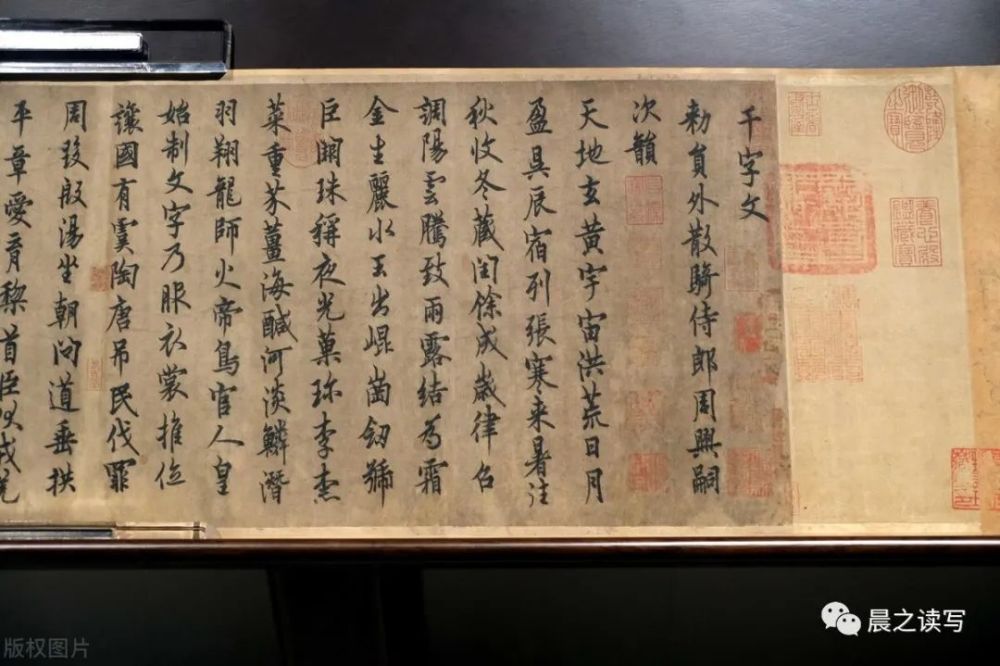 千字文
勑員外散騎侍郎周興嗣
次韻
天地玄黄宇宙洪荒日月
盈昃辰宿列張寒来暑往
秋收冬藏閏餘成歲律召
調陽雲騰致雨露結為霜
金生麗水玉出崐崗劒號
巨闕珠稱夜光菓珎李柰
菜重芥薑海醎河淡鱗潛
羽翔龍師火帝鳥官人皇
始制文字乃服衣裳推位
讓國有虞陶唐吊民伐罪
周發殷湯坐朝問道垂拱
平章愛育黎首臣伏戎羌
晨之读写
版权图片